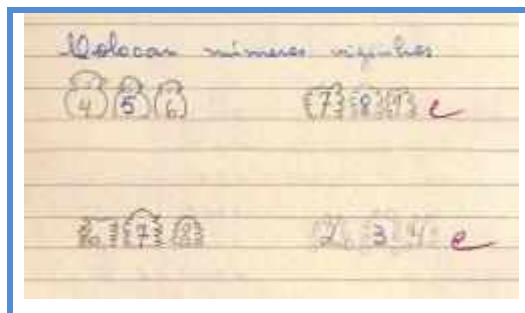 Colocar números vizinhos
4 5 6 7 8 9 c
6 7 8 2 3 4 c